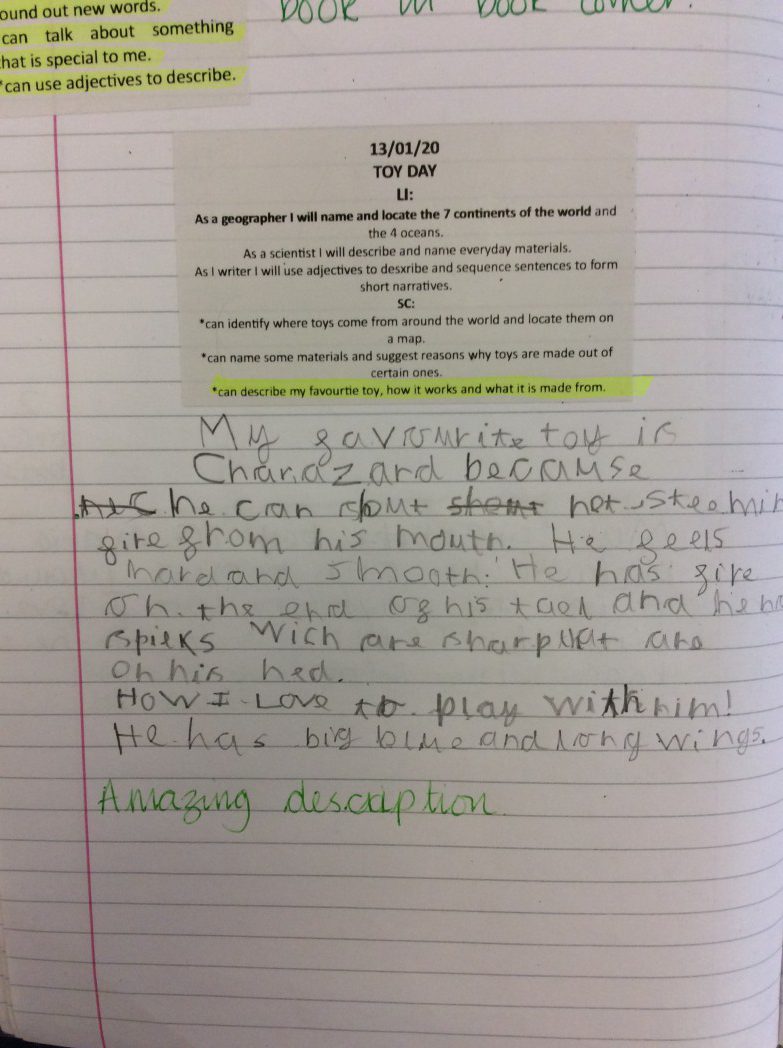 ound out new words.
can talk about something
hat is special to me.
*can use adjectives to describe.
book in book corner.
13/01/20
TOY DAY
LI:
As a geographer I will name and locate the 7 continents of the world and
the 4 oceans.
As a scientist I will describe and name everyday materials.
As I writer I will use adjectives to desxribe and sequence sentences to form
short narratives.
SC:
*can identify where toys come from around the world and locate them on
a map.
*can name some materials and suggest reasons why toys are made out of
certain ones.
*can describe my favourtie toy, how it works and what it is made from.
My favourite toy is
Charazard because
he can shoot hot steamin
fire from his mouth. He feels
hard and smooth. He has fire
on the end of his tael and he ha
spieks wich are sharp that are
on his hed.
How I love to play with him!
He has big blue and long wings.
Amazing description